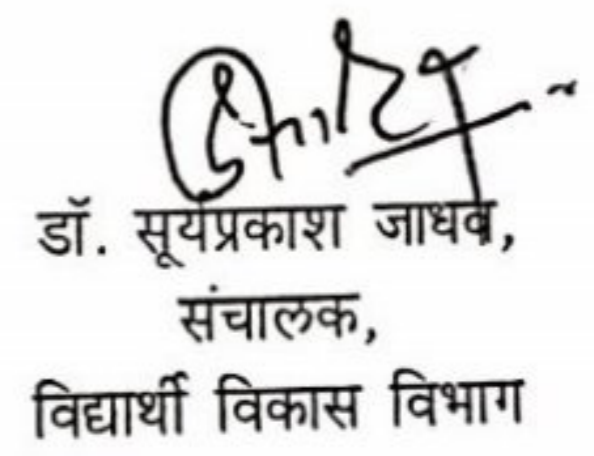 डॉ. सूर्यप्रकाश जाधव,
संचालक,
विद्यार्थी विकास विभाग